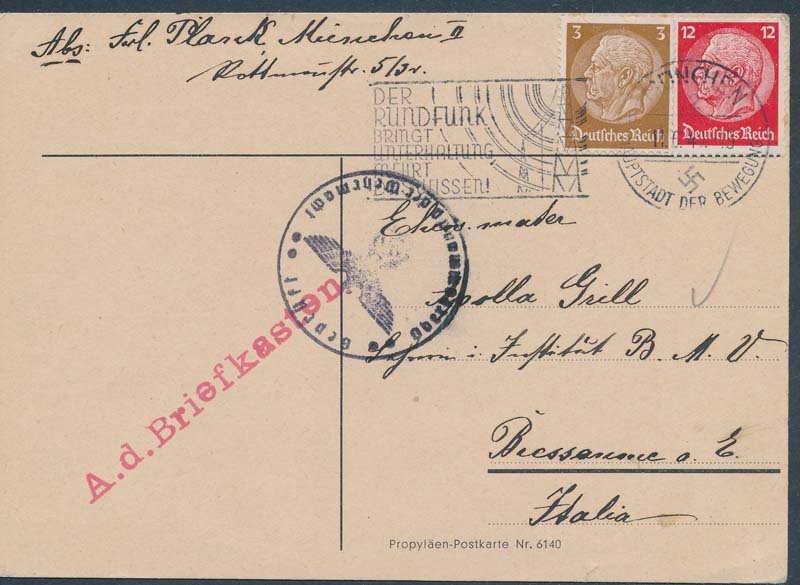 Abs: Frl. Planck, München II
Rottmannstr. 5/3r.
3 3
Deutsches Reich
12 12
Deutsches Reich
DER
RUNDFUNK
BRINGT
UNTERHALTUNG
MÜNCHEN
HAUPTSTADT DER BEWEGUNG
Geprüft
Oberkommando der Wehrmacht
A.d.Briefkasten
Ehrw. mater
Apolla Grill
Institut B. M. V.
Italia
Propyläen-Postkarte Nr. 6140